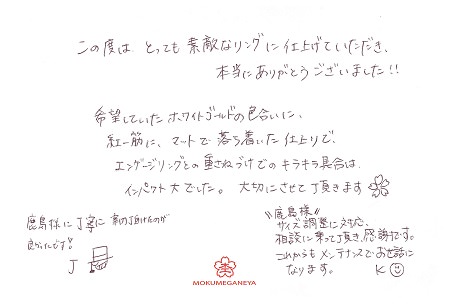 この度は とっても 素敵なリングに仕上げていただき、
本当にありがとうございました!!
希望していたホワイトゴールドの色合いに、
紅一筋に、マットで落ち着いた仕上りで、
エンゲージリングとの重ねづけでのキラキラ具合は、
インパクト大でした。大切にさせて頂きます
鹿島様に丁寧に
良かったです!
J
〝鹿島様〟
サイズ調整に対応、
相談に乗って頂き、感謝です。
これからもメンテナンスでお世話に
なります。 K
MOKUMEGANEYA